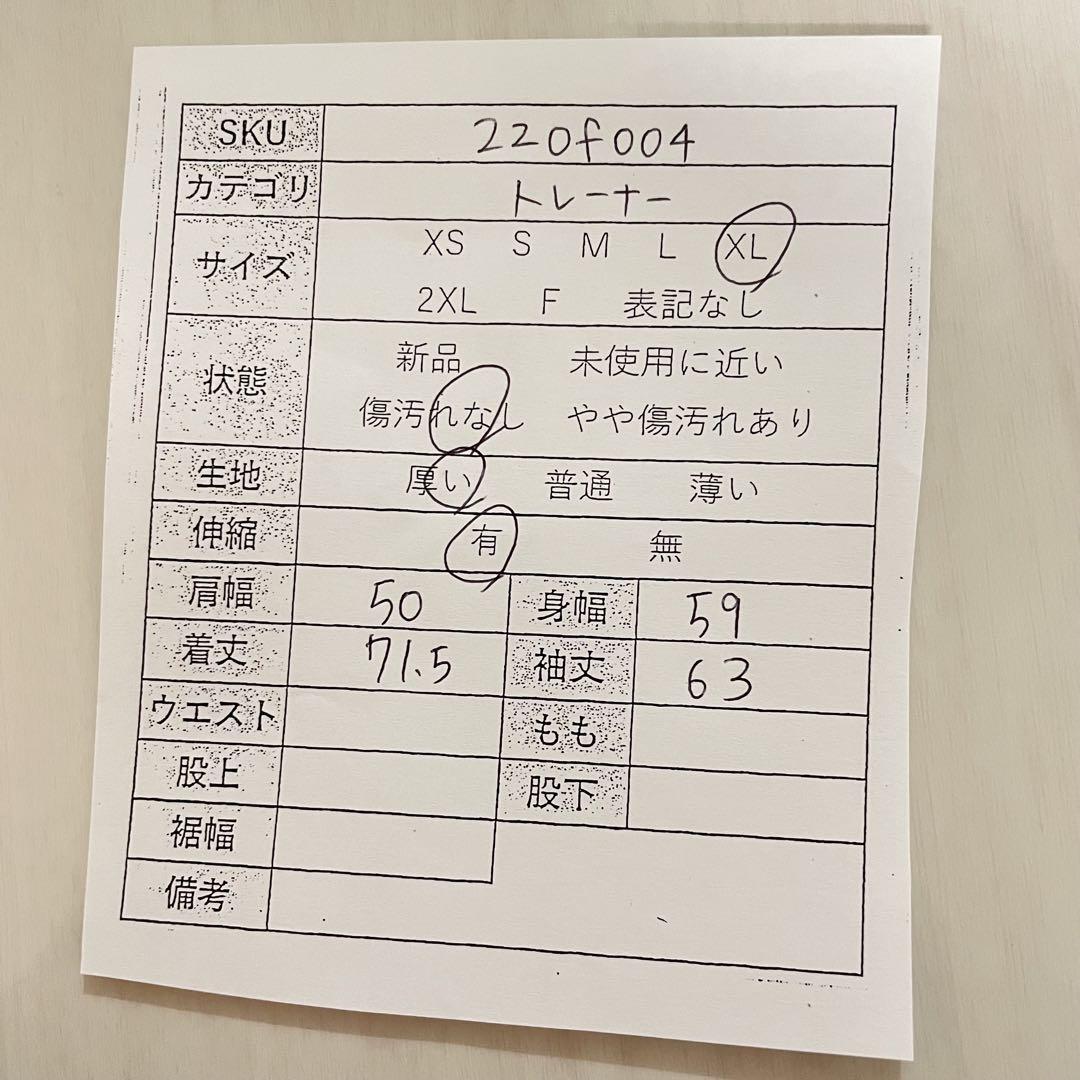 SKU 220f004
カテゴリ トレーナー
サイズ XS S M L XL
2XL F 表記なし
状態 新品 未使用に近い
傷汚れなし やや傷汚れあり
生地 厚い 普通 薄い
伸縮 有 無
肩幅 50 身幅 59
着丈 71.5 袖丈 63
ウエスト もも
股上 股下
裾幅
備考